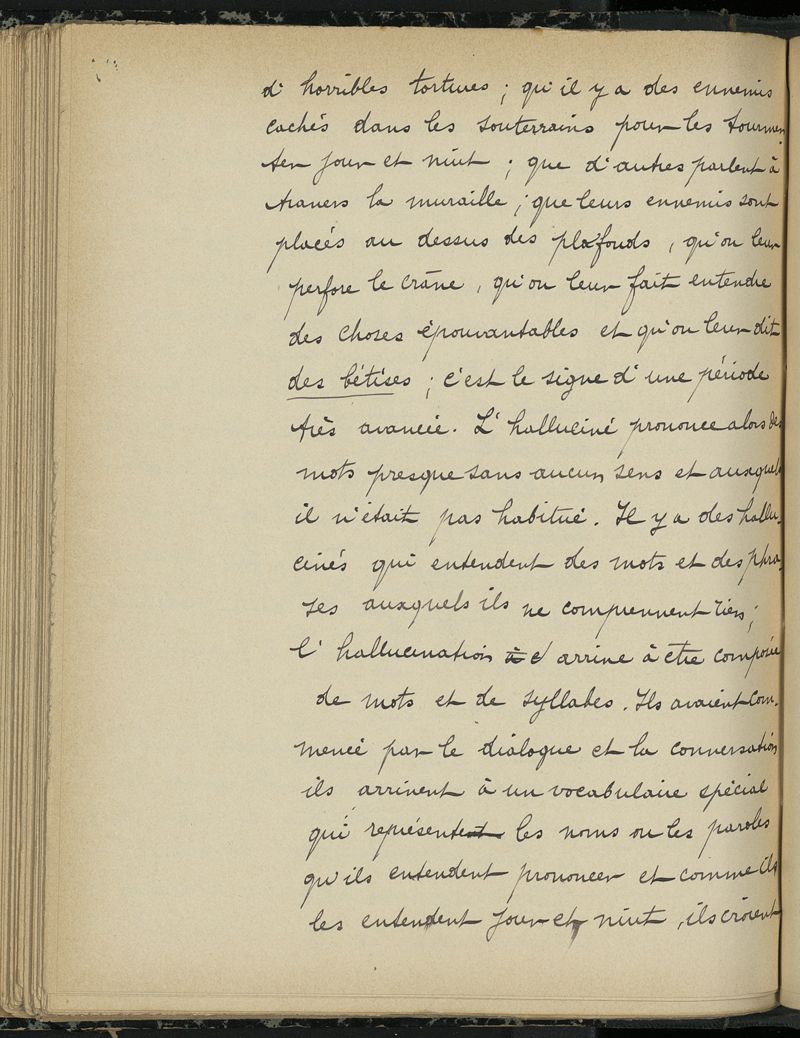 d' horribles tortures ; qu'il y a des ennemis
cachés dans les souterrains pour les tourmen-
ter jour et nuit ; que d'autres parlent à
travers la muraille ; que leurs ennemis sont
placés au dessus des plafonds, qu'on leur
perfore le crâne, qu'on leur fait entendre
des choses épouvantables et qu'on leur dit
des bétises ; c'est le signe d'une période
très avancée. L'halluciné prononce alors des
mots presque sans aucun sens et auxquels
il n'était pas habitué. Il y a des hallu-
cinés qui entendent des mots et des phra-
ses auxquels ils ne comprennent rien ;
l'hallucination arrive à être composée
de mots et de syllabes. Ils avaient com-
mencé par le dialogue et la conversation
ils arrivent à un vocabulaire spécial
qui représente les noms ou les paroles
qu'ils entendent prononcer et comme ils
les entendent jour et nuit, ils croient